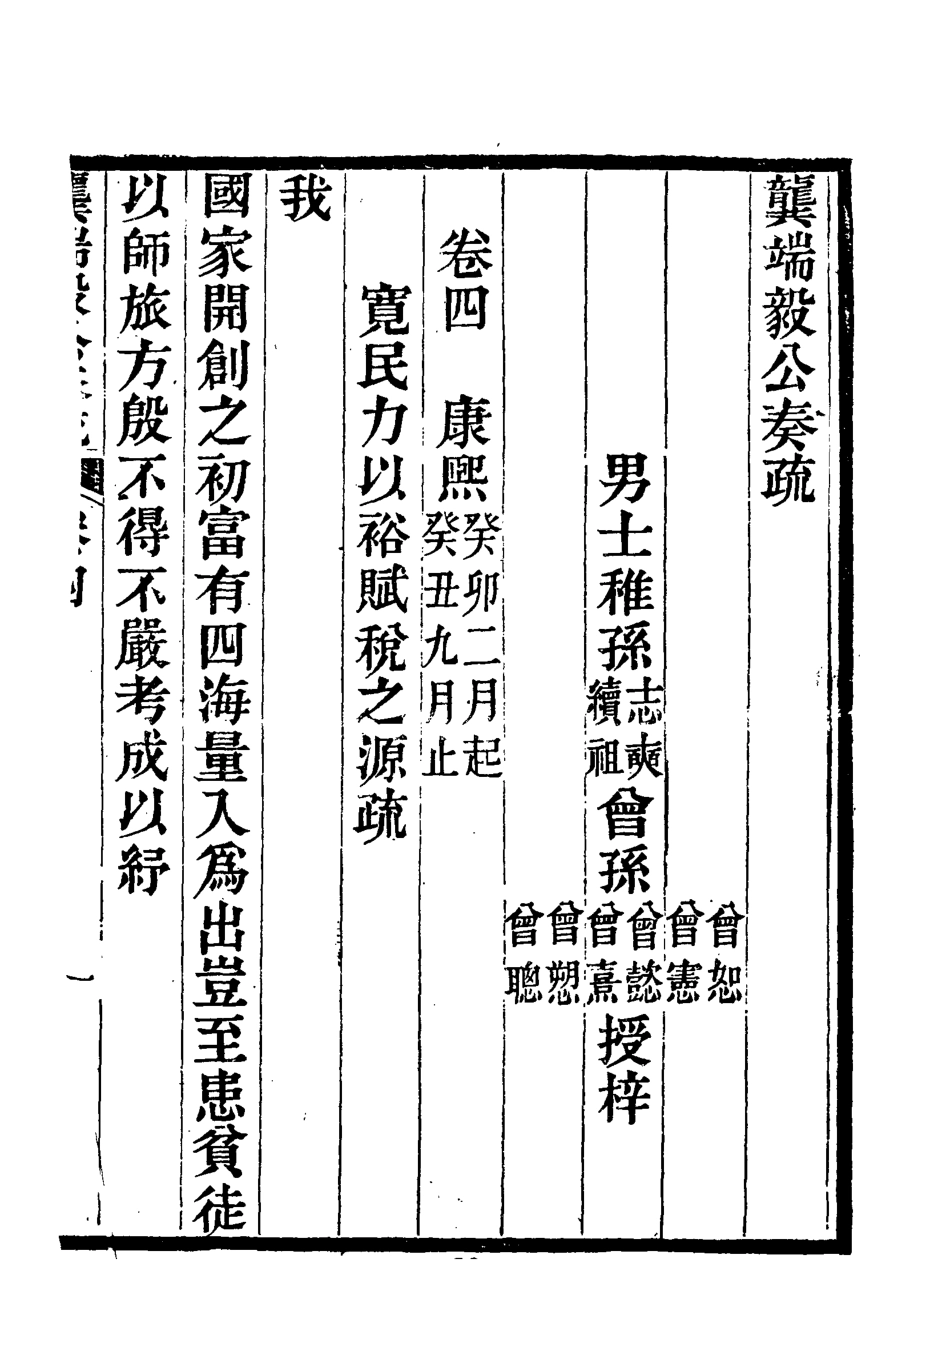 龔端毅公奏疏
曾恕
曾憲
男士稚孫志奭續祖曾孫曾懿曾熹授梓
曾愬
曾聰
卷四　康熙癸卯二月起癸丑九月止
寬民力以裕賦稅之源疏
我
國家開創之初富有四海量入爲出豈至患貧徒
以師旅方殷不得不嚴考成以紓
龔端毅公奏疏　卷四　一